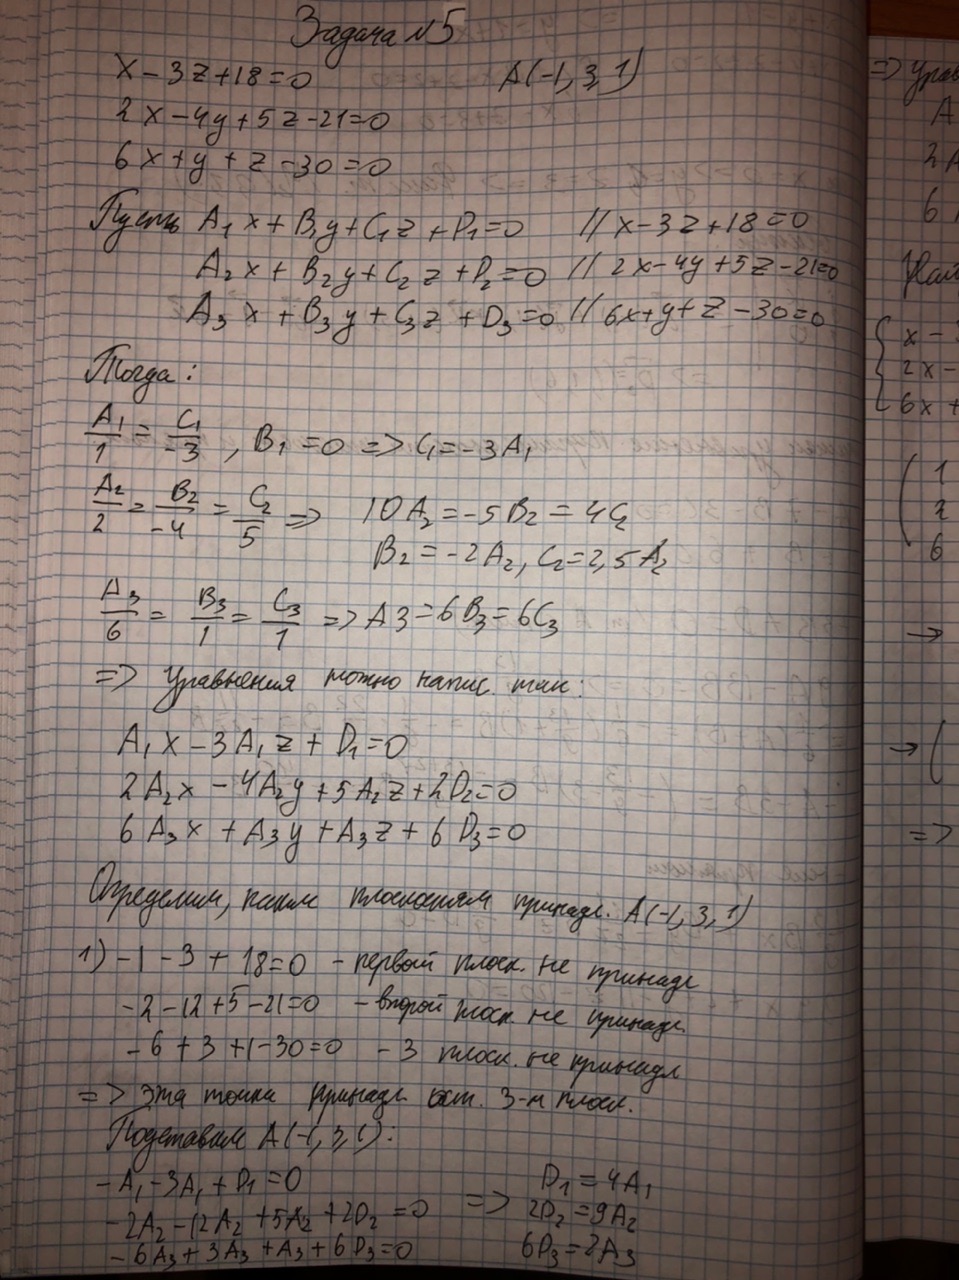 Задача №5
x - 3z + 18 = 0 A(-1, 3, 1)
2x - 4y + 5z - 21 = 0
6x + y + z - 30 = 0
Пусть A₁x + B₁y + C₁z + D₁ = 0 // x - 3z + 18 = 0
A₂x + B₂y + C₂z + D₂ = 0 // 2x - 4y + 5z - 21 = 0
A₃x + B₃y + C₃z + D₃ = 0 // 6x + y + z - 30 = 0
Тогда:
A₁/1 = C₁/-3, B₁ = 0 => C₁ = -3A₁
A₂/2 = B₂/-4 = C₂/5 => 10A₂ = -5B₂ = 4C₂
B₂ = -2A₂, C₂ = 2,5A₂
A₃/6 = B₃/1 = C₃/1 => A3 = 6B₃ = 6C₃
=> Уравнения можно напис. так:
A₁x - 3A₁z + D₁ = 0
2A₂x - 4A₂y + 5A₂z + 2D₂ = 0
6A₃x + A₃y + A₃z + 6D₃ = 0
Определим, каким плоскостям принадл. A(-1, 3, 1)
1) -1 - 3 + 18 = 0 - первой плоск. не принадл
-2 - 12 + 5 - 21 = 0 - второй плоск. не принадл.
-6 + 3 + 1 - 30 = 0 - 3 плоск. не принадл
=> эта точка принадл. ост. 3-м плоск.
Подставим A(-1, 3, 1):
-A₁ - 3A₁ + D₁ = 0 => D₁ = 4A₁
-2A₂ - 12A₂ + 5A₂ + 2D₂ = 0 2D₂ = 9A₂
-6A₃ + 3A₃ + A₃ + 6D₃ = 0 6D₃ = 2A₃
=> урав
A
2A
6
Най
{ x -
2x -
6x +
( 1
2
6
→
→ (
=>